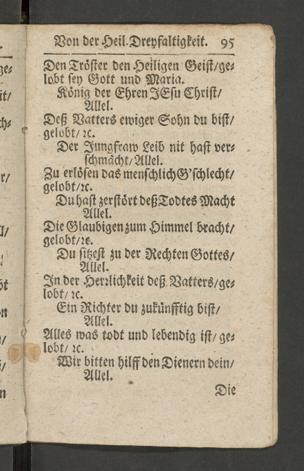 Von der Heil. Dreyfaltigkeit. 95
Den Tröster den Heiligen Geist/ge-
lobt sey Gott und Maria.
König der Ehren JEsu Christ/
Allel.
Deß Vatters ewiger Sohn du bist/
gelobt/ ꝛc.
Der Jungfraw Leib nit hast ver-
schmächt/Allel.
Zu erlösen das menschlich G'schlecht/
gelobt/ꝛc.
Du hast zerstört deß Todtes Macht
Allel.
Die Glaubigen zum Himmel bracht/
gelobt/ꝛc.
Du sitzest zu der Rechten Gottes/
Allel.
In der Herrlichkeit deß Vatters/ge-
lobt/ ꝛc.
Ein Richter du zukünfftig bist/
Allel.
Alles was todt und lebendig ist/ ge-
lobt/ ꝛc.
Wir bitten hilff den Dienern dein/
Allel.
Die